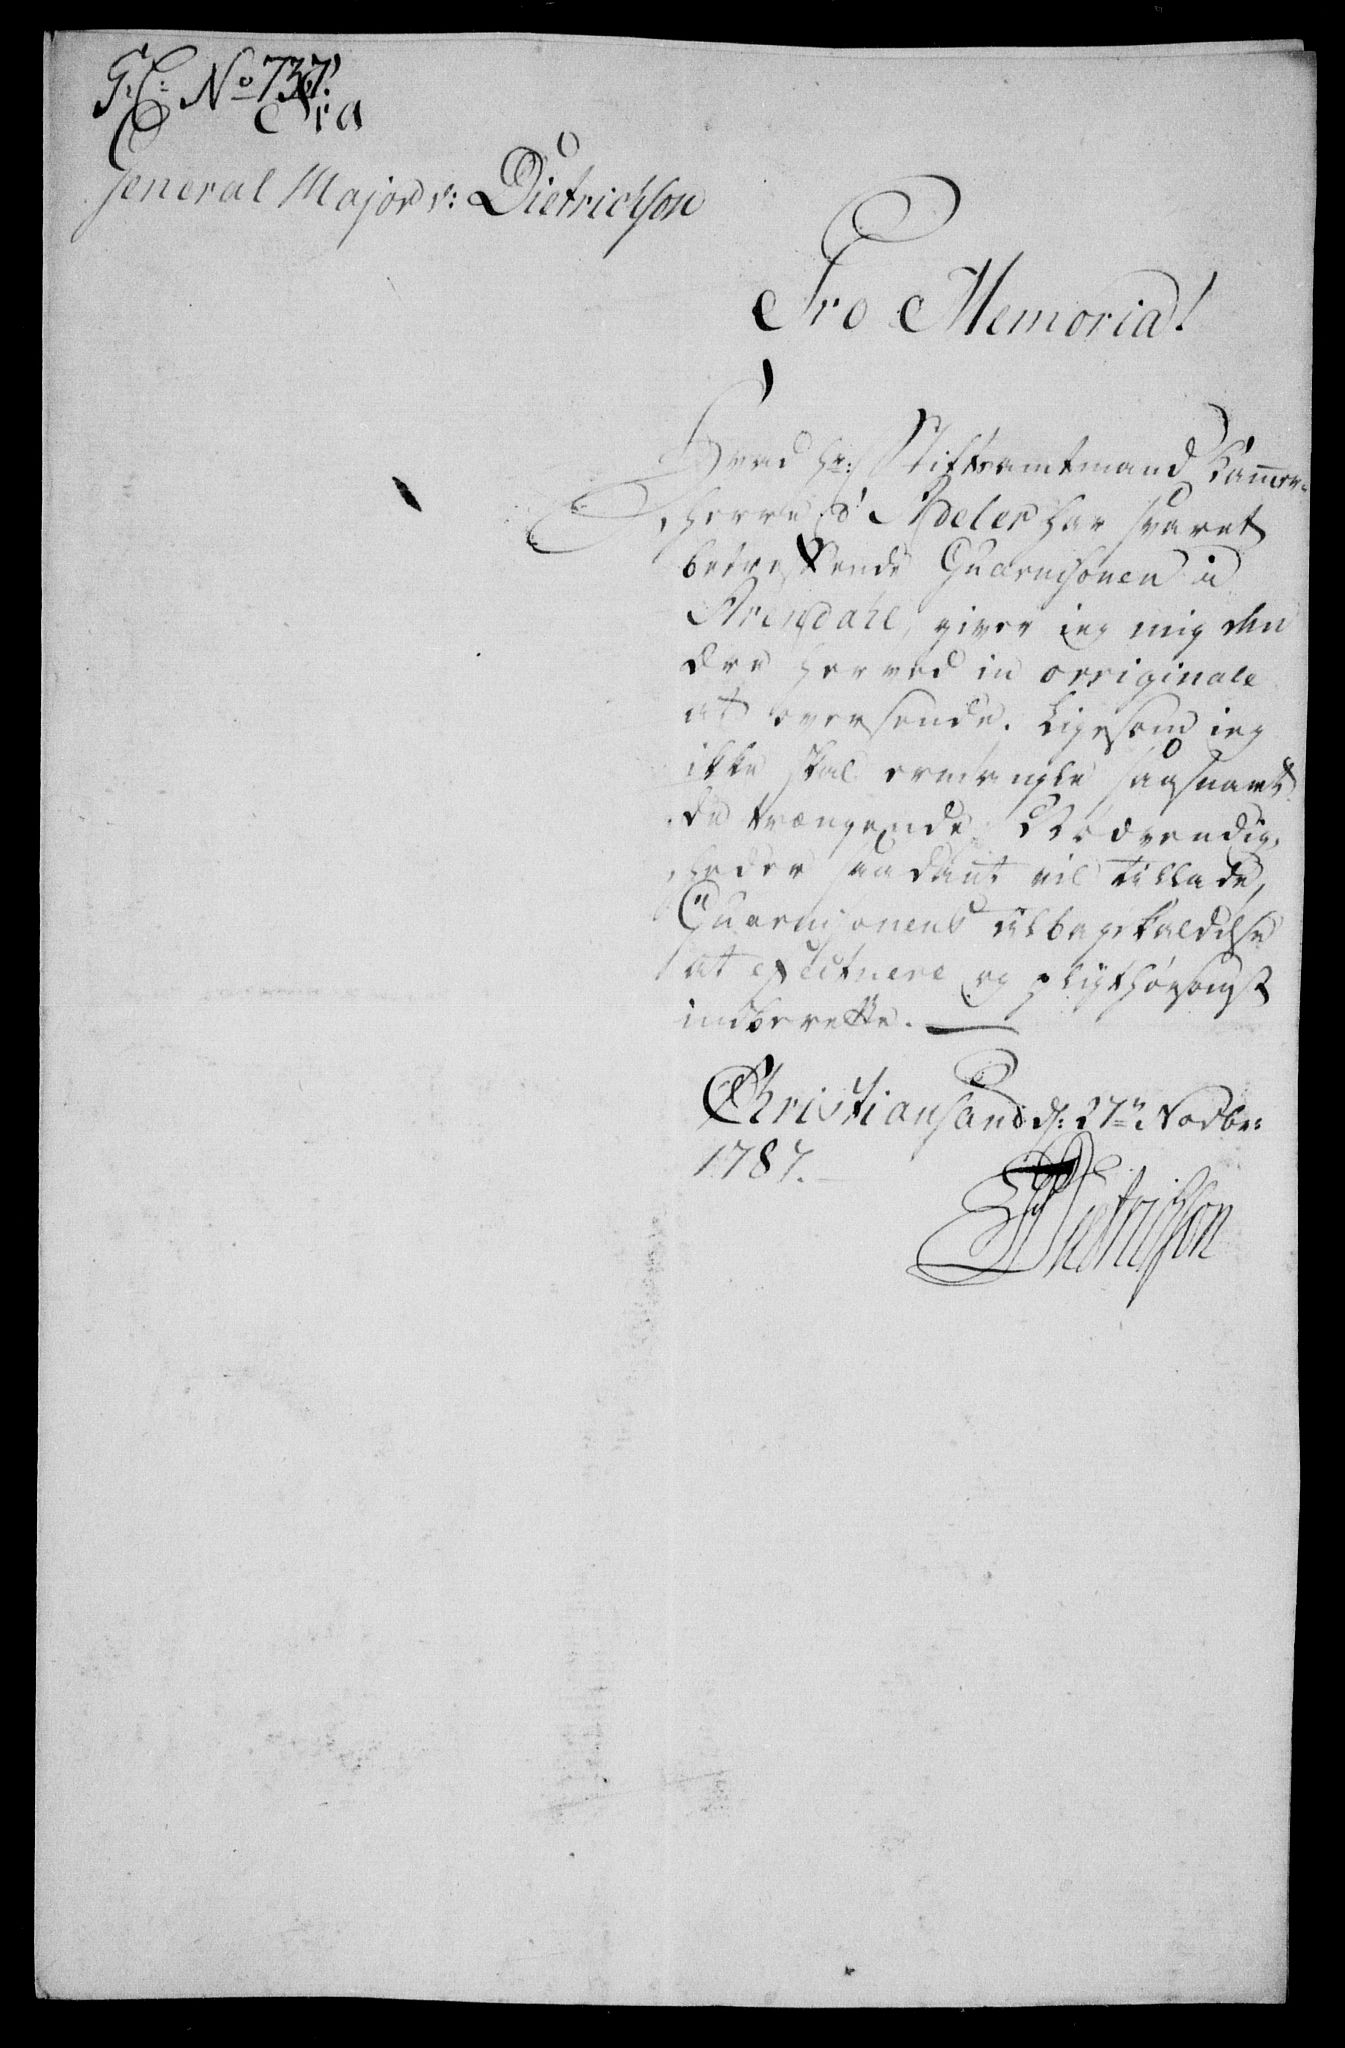 G: C: No 737.
General Major v: Dietrichson
Pro Memoria!
Hvad Hr: Stiftsamtmand Kammer-
herre d' Adeler har svaret
betreffende Guarnisonen i
Arendahl, giver ieg mig den
Ære herved in originale
at oversende. Ligesom ieg
ikke skal ermangle, saasnart
de trængende Nødvendig-
heder saadant vil tillade,
Guarnisonens tilbagekaldelse
at effectuere og pligtskyldigst
indberette. —
Christiansand d: 27de Novbr:
1787. —
Dietrichson